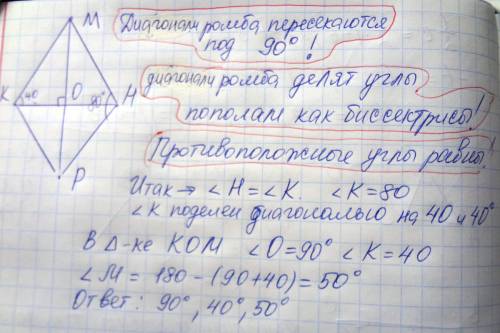 M
Диагонали ромба пересекаются
под 90°!
K
40
O
80°
H
диагонали ромба делят углы
пополам как биссектрисы!
P
Противоположные углы равны!
Итак → ∠H = ∠K. ∠K = 80
∠K поделен диагональю на 40 и 40°
В Δ-ке KOM ∠O = 90° ∠K = 40
∠M = 180 - (90+40) = 50°
Ответ: 90°, 40°, 50°